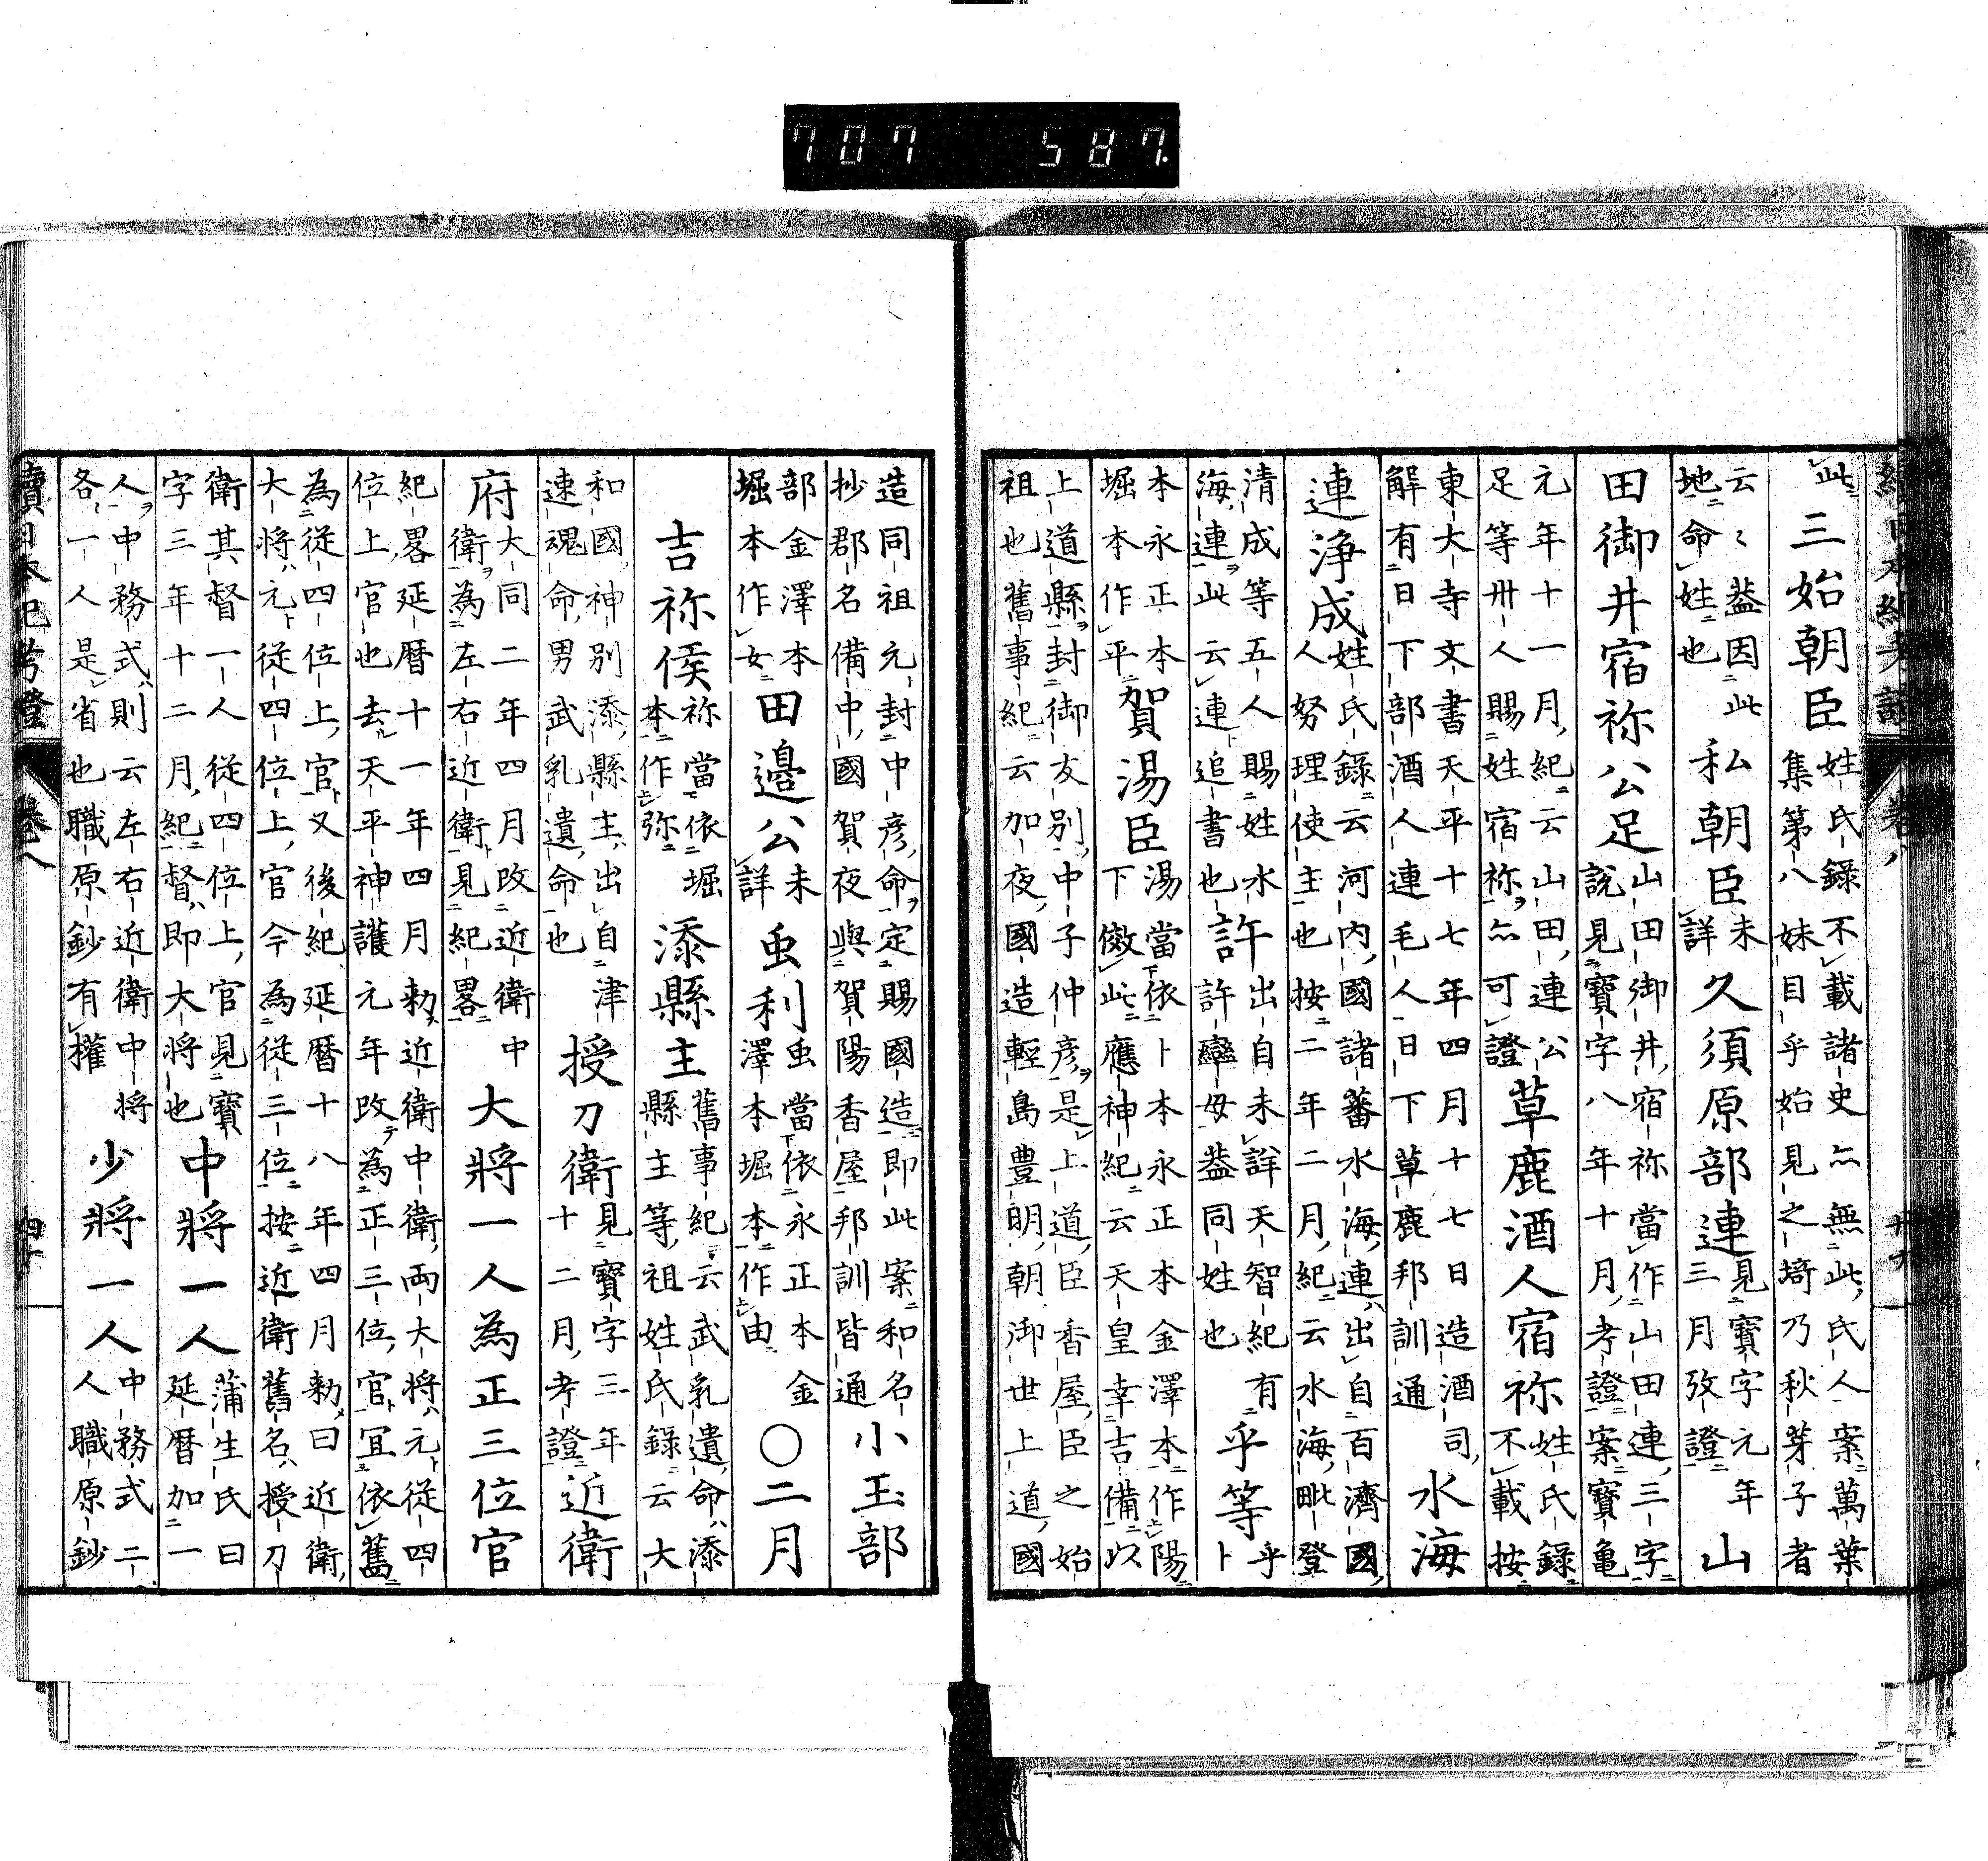 707 587.
續日本紀考證 卷八
此 三始朝臣 姓氏錄不載諸史亦無此氏人案萬葉
集第八妹目乎始見之埼乃秋芽子者
云〻蓋因此
地命姓也 私朝臣 未詳 久須原部連 見寶字元年
三月攷證 山
田御井宿祢公足 山田御井宿祢當作山田連三字
說見寶字八年十月考證案寶亀
元年十一月紀云山田連公
足等卅人賜姓宿祢亦可證 草鹿酒人宿祢 姓氏錄
不載按
東大寺文書天平十七年四月十七日造酒司
解有日下部酒人連毛人日下草鹿邦訓通 水海
連浄成 姓氏錄云河内國諸蕃水海連出自百濟國
人努理使主也按二年二月紀云水海毗登
清成等五人賜姓水
海連此云連追書也 許 出自未詳天智紀有
許許蠻母蓋同姓也 乎等 乎卜
本永正本
堀本作平 賀湯臣 湯當依卜本永正本金澤本作陽
下傚此應神紀云天皇幸吉備以
上道縣封御友別中子仲彦是上道臣香屋臣之始
祖也舊事紀云加夜國造輕島豊明朝御世上道國
造同祖元封中彦命定賜國造即此案和名
抄郡名備中國賀夜與賀陽香屋邦訓皆通 小玉部
部金澤本
堀本作女 田邊公 未詳 虫利 虫當依永正本金
澤本堀本作由 〇二月
吉祢侯 祢當依堀
本作弥 添縣主 舊事紀云武乳遺命添
縣主等祖姓氏錄云大
和國神別添縣主出自津
速魂命男武乳遺命也 授刀衛 見寶字三年
十二月考證 近衛
府 大同二年四月改近衛中
衛為左右近衛見紀畧 大將一人為正三位官
紀畧延暦十一年四月勅近衛中衛両大將元從四
位上官也去天平神護元年改テ為正三位官宜依舊
為從四位上官又後紀延暦十八年四月勅曰近衛
大將元從四位上官今為從三位按近衛舊名授刀
衛其督一人從四位上官見寶
字三年十二月紀督即大將也 中將一人 蒲生氏曰
延暦加一
人中務式則云左右近衛中將
各一人是省也職原鈔有權 少將一人 中務式二
人職原鈔
續日本紀考證 卷八 四十